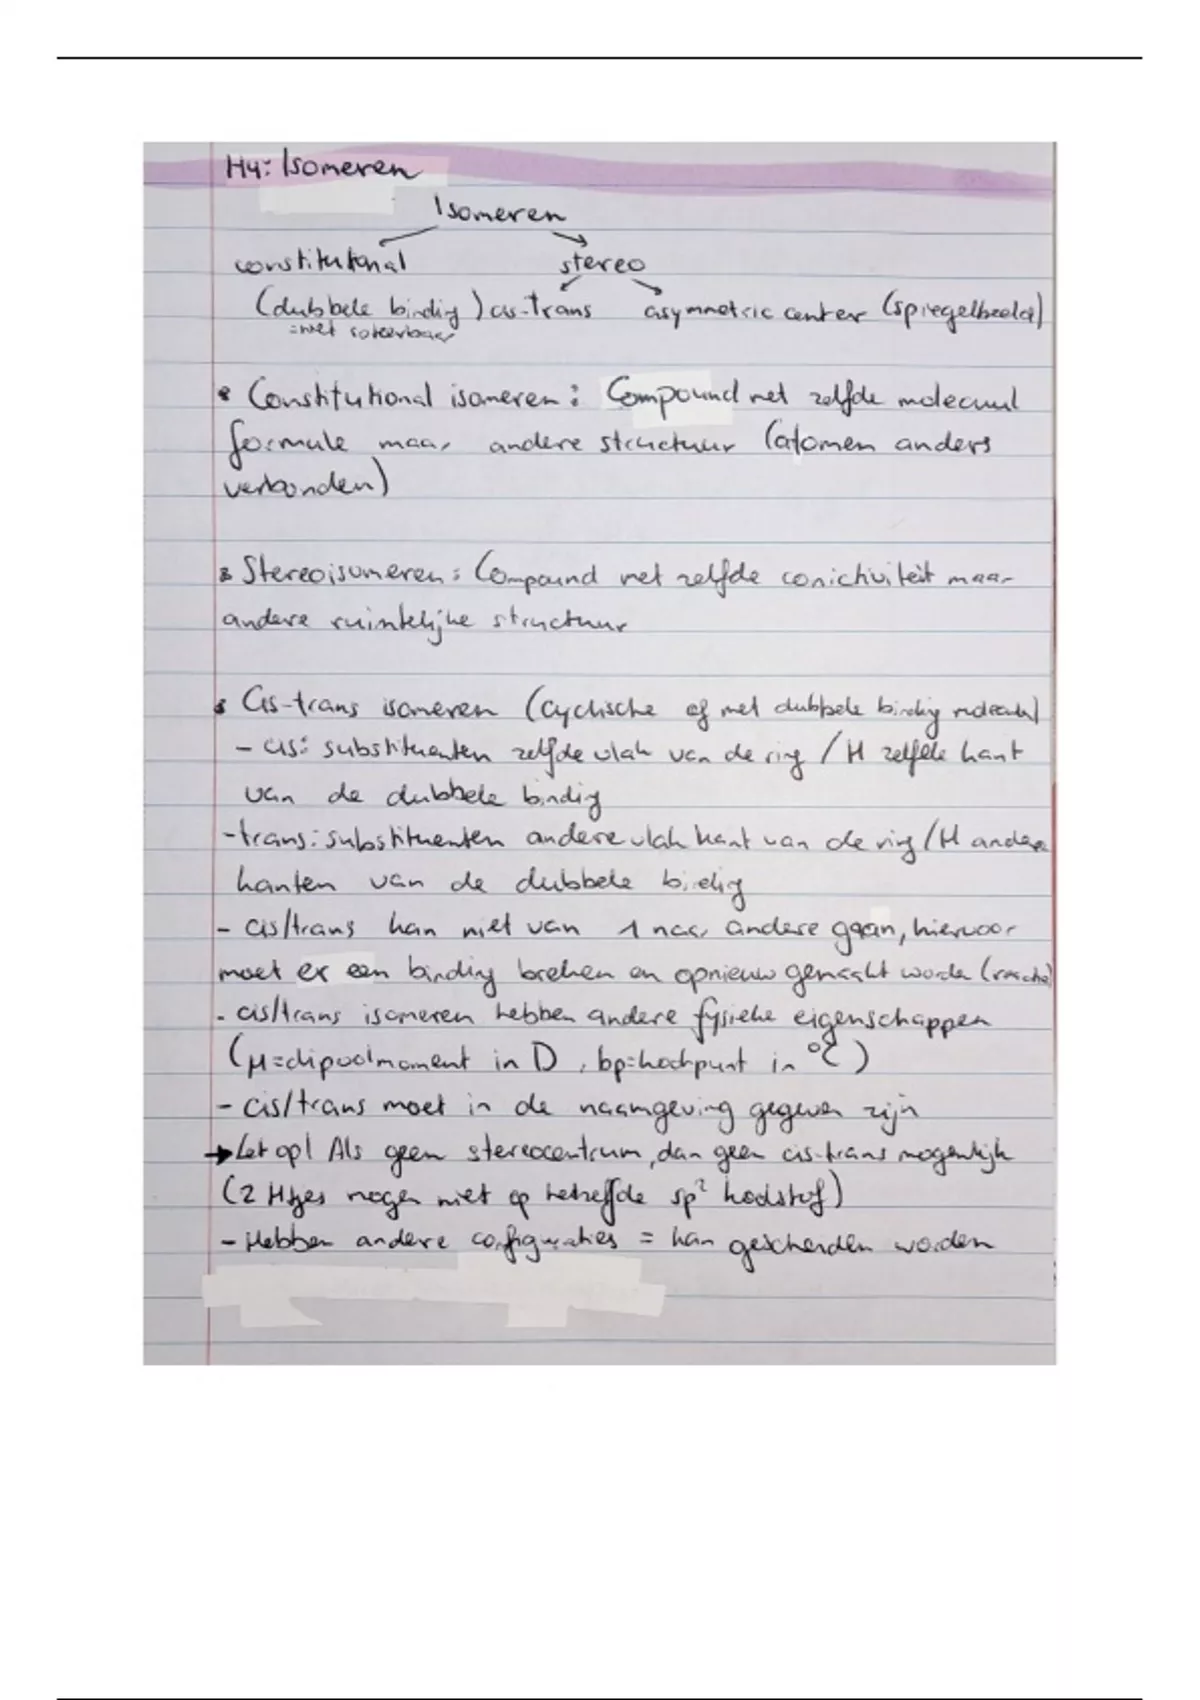 H4: Isomeren
Isomeren
constitutional stereo
(dubbele binding) cis-trans asymmetric center (spiegelbeeld)
=niet roteerbaar
Constitutional isomeren: Compound met zelfde molecuul
formule maar andere structuur (atomen anders
verbonden)
Stereoisomeren: Compound met zelfde conictiviteit maar
andere ruimtelijke structuur
Cis-trans isomeren (cyclische of met dubbele binding moleculen)
- cis: substituenten zelfde vlak van de ring / H zelfde kant
van de dubbele binding
- trans: substituenten andere vlak kant van de ring / H andere
kanten van de dubbele binding
- cis/trans kan niet van 1 naar andere gaan, hiervoor
moet er een binding breken en opnieuw gemaakt worden (reactie)
- cis/trans isomeren hebben andere fysieke eigenschappen
(μ=dipoolmoment in D, bp=kookpunt in °C)
- cis/trans moet in de naamgeving gegeven zijn
→ Let op! Als geen stereocentrum, dan geen cis-trans mogenlijk
(2 H'tjes mogen niet op betreffde sp² koolstof)
- Hebben andere configuraties = kan gescheiden worden